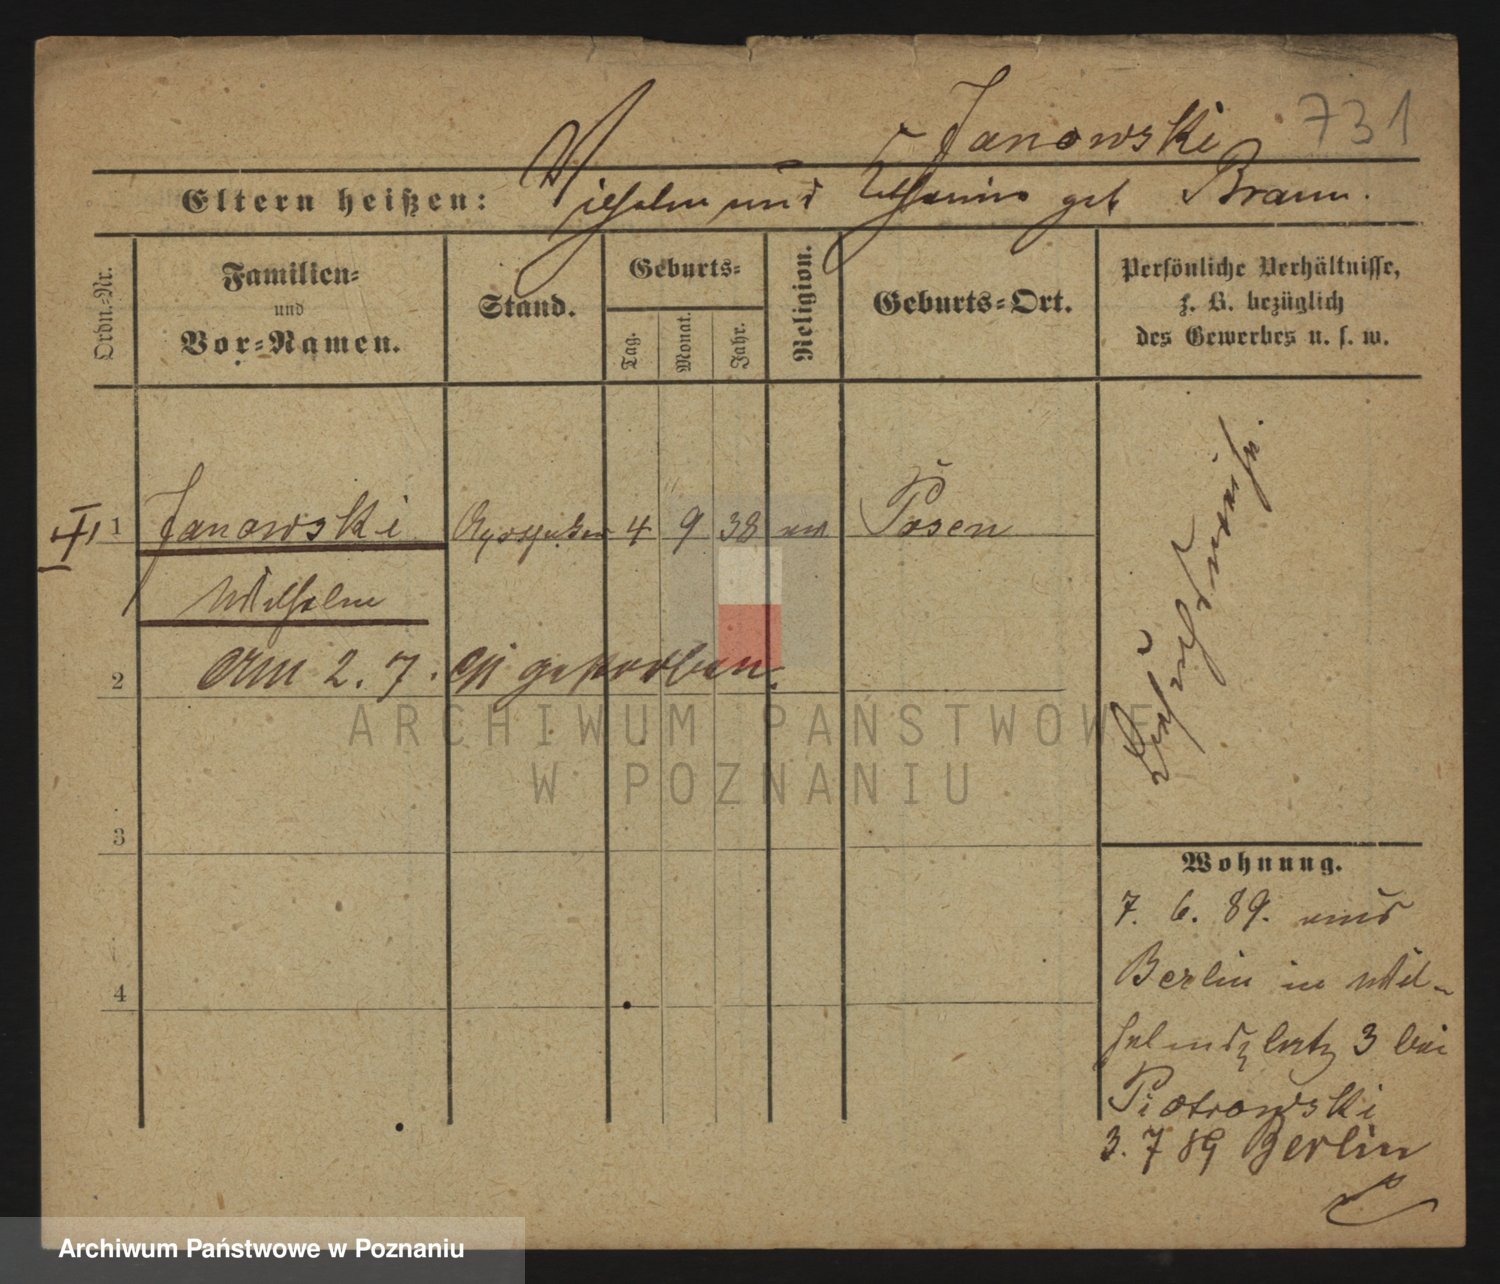 Janowski 731
Eltern heißen: Wilhelm und geb Braun.
Ordn.-Nr.
Familien-
und
Vor-Namen.
Stand.
Geburts-
Tag.
Monat.
Jahr.
Religion.
Geburts-Ort.
Persönliche Verhältnisse,
z. B. bezüglich
des Gewerbes u. s. w.
1 Janowski 4 9 38 ev Posen
Wilhelm
2 am 2. 7. gestorben.
3
4
Wohnung.
7. 6. 89. aus
Berlin in Wil-
helmsplatz 3 bei
Piotrowski
3. 7 89 Berlin
ARCHIWUM PAŃSTWOWE
W POZNANIU
Archiwum Państwowe w Poznaniu